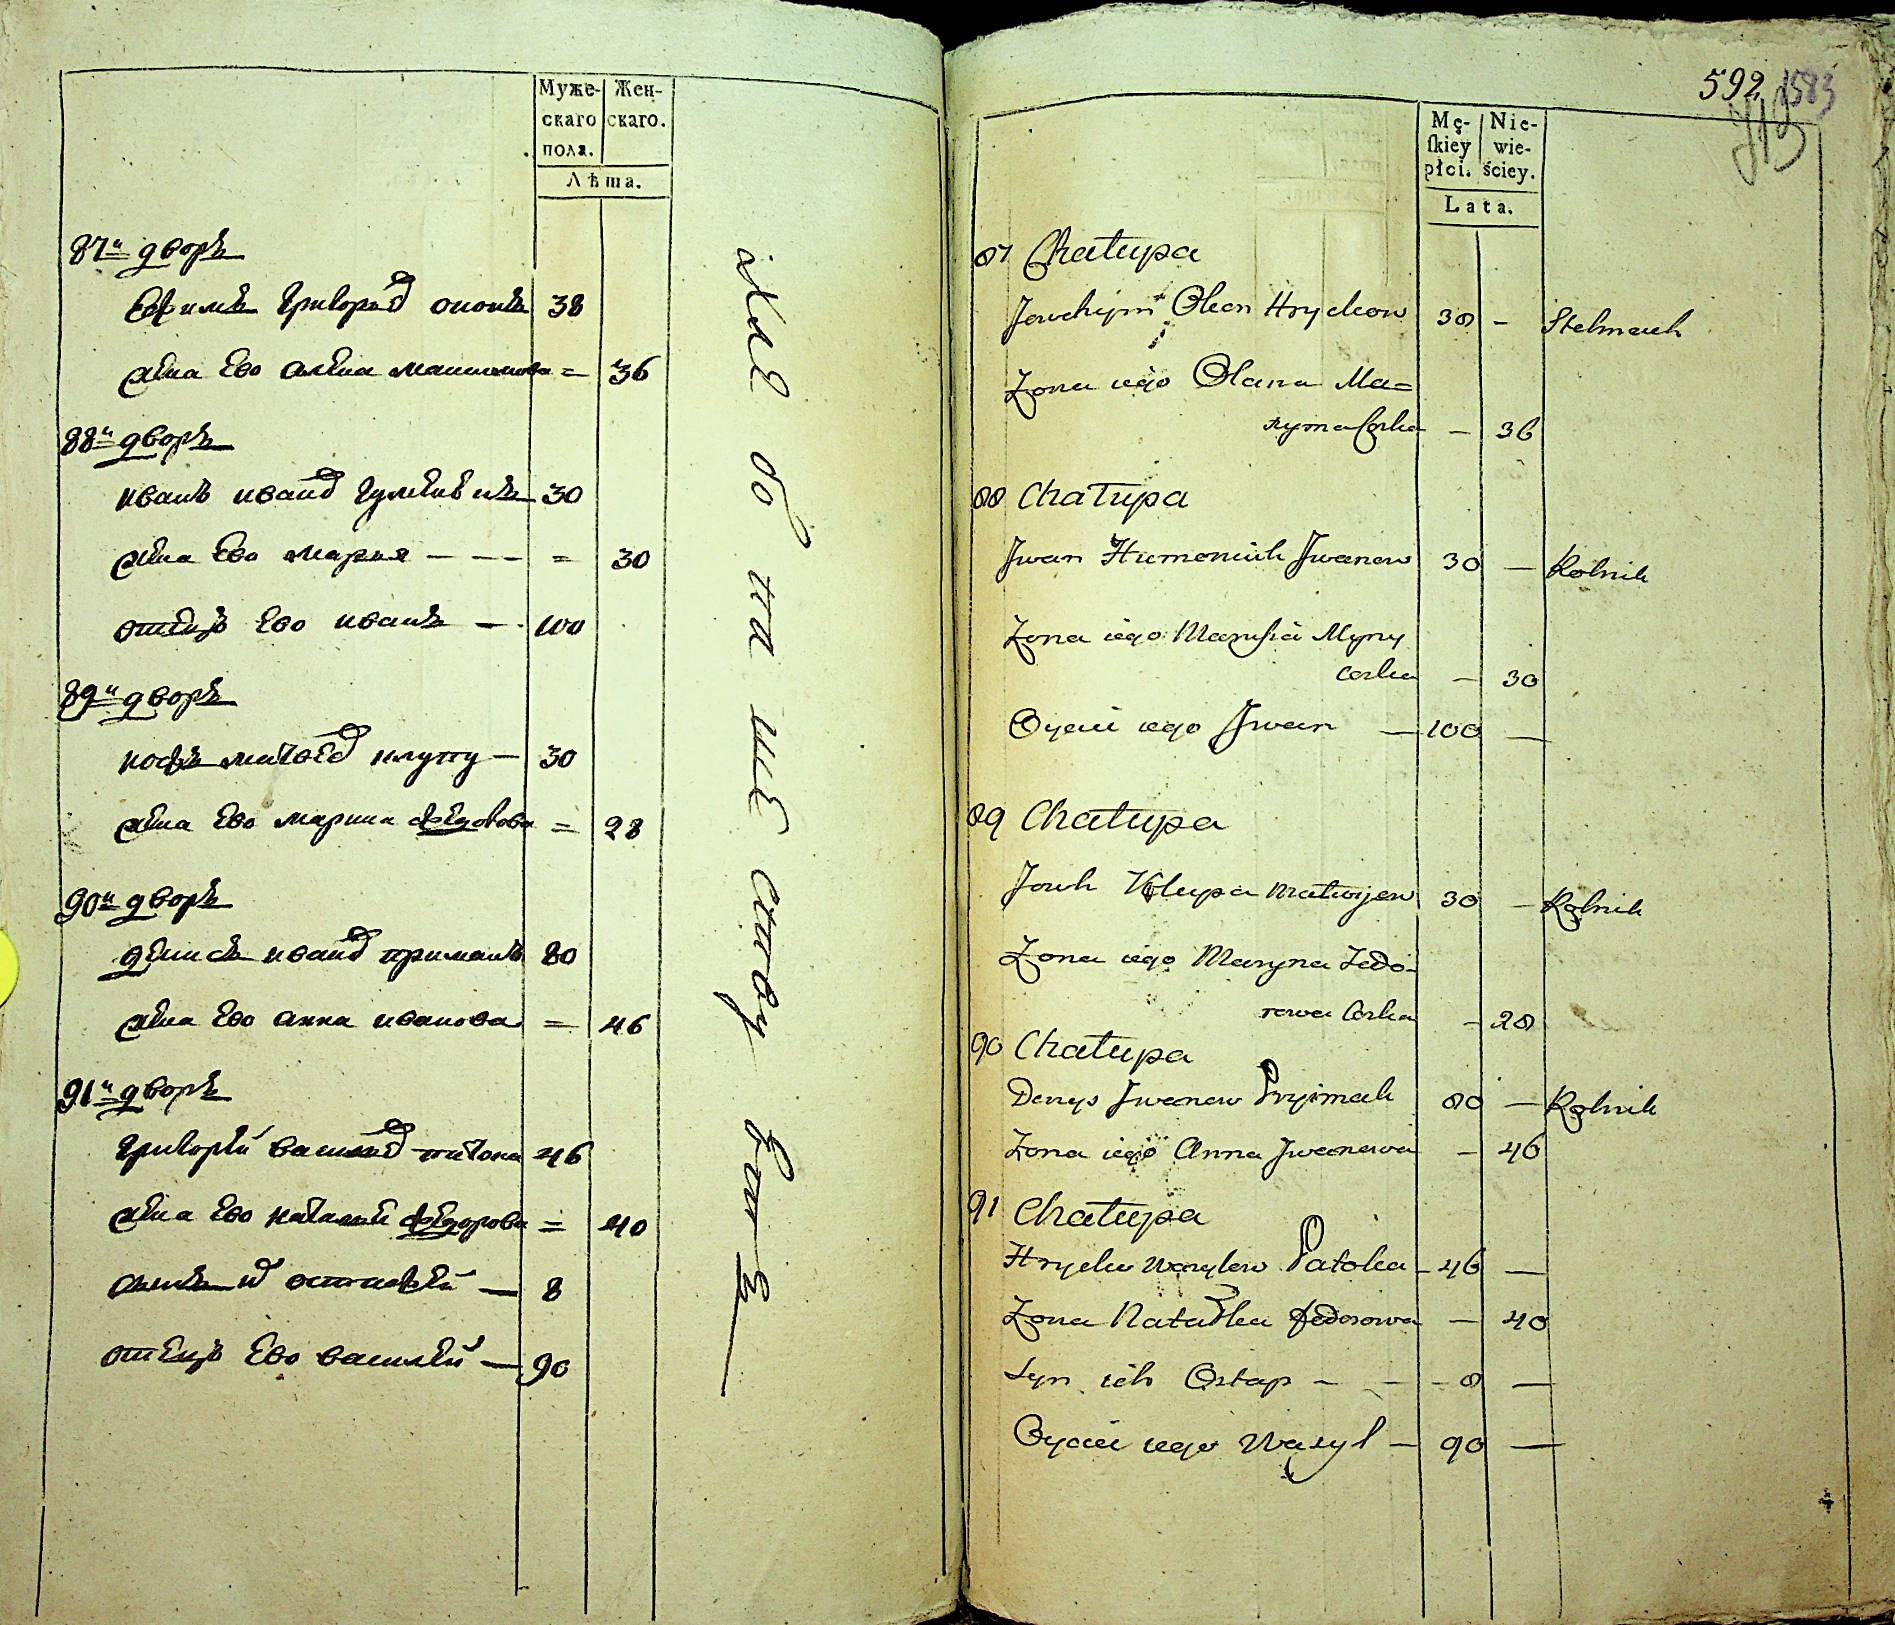 Муже-
скаго
пола.
Жен-
скаго.
Лѣта.
87й дворъ
Ефимъ Григорьев 38
жена Ево алена = 36
88й дворъ
иванъ иванов 30
жена Ево марья — — — = 30
отецъ Ево иванъ — 100
89й дворъ
матвеев 30
жена Ево марина = 28
90й дворъ
денисъ иванов примакъ 80
жена Ево анна иванова = 46
91й дворъ
григорей васильев 46
жена Ево наталья федорова = 40
8
отецъ Ево василей — 90
592
1583
Mę-
ſkiey
płci.
Nie-
wie-
ściey.
Lata.
87 Chałupa
Hryckow 38 – Stelmach
Żona iego Olana Ma=
xyma Corka — 36
88 Chałupa
Jwan Humeniuk Jwanow 30 — Rolnik
Żona iego Marusia
Corka — 30
Oyciec iego Jwan — 100 —
89 Chałupa
Matwijow 30 — Rolnik
Żona iego Maryna Fedo-
rowa Corka – 28
90 Chałupa
Denys Jwanow Pryimak 80 — Rolnik
Żona iego Anna Jwanowa — 46
91 Chałupa
Hrycko Wasylow Patoka – 46 —
Żona Natalka Fedorowa — 40
Syn ich Ostap – – – 8 —
Oyciec iego Wasyl — 90 —